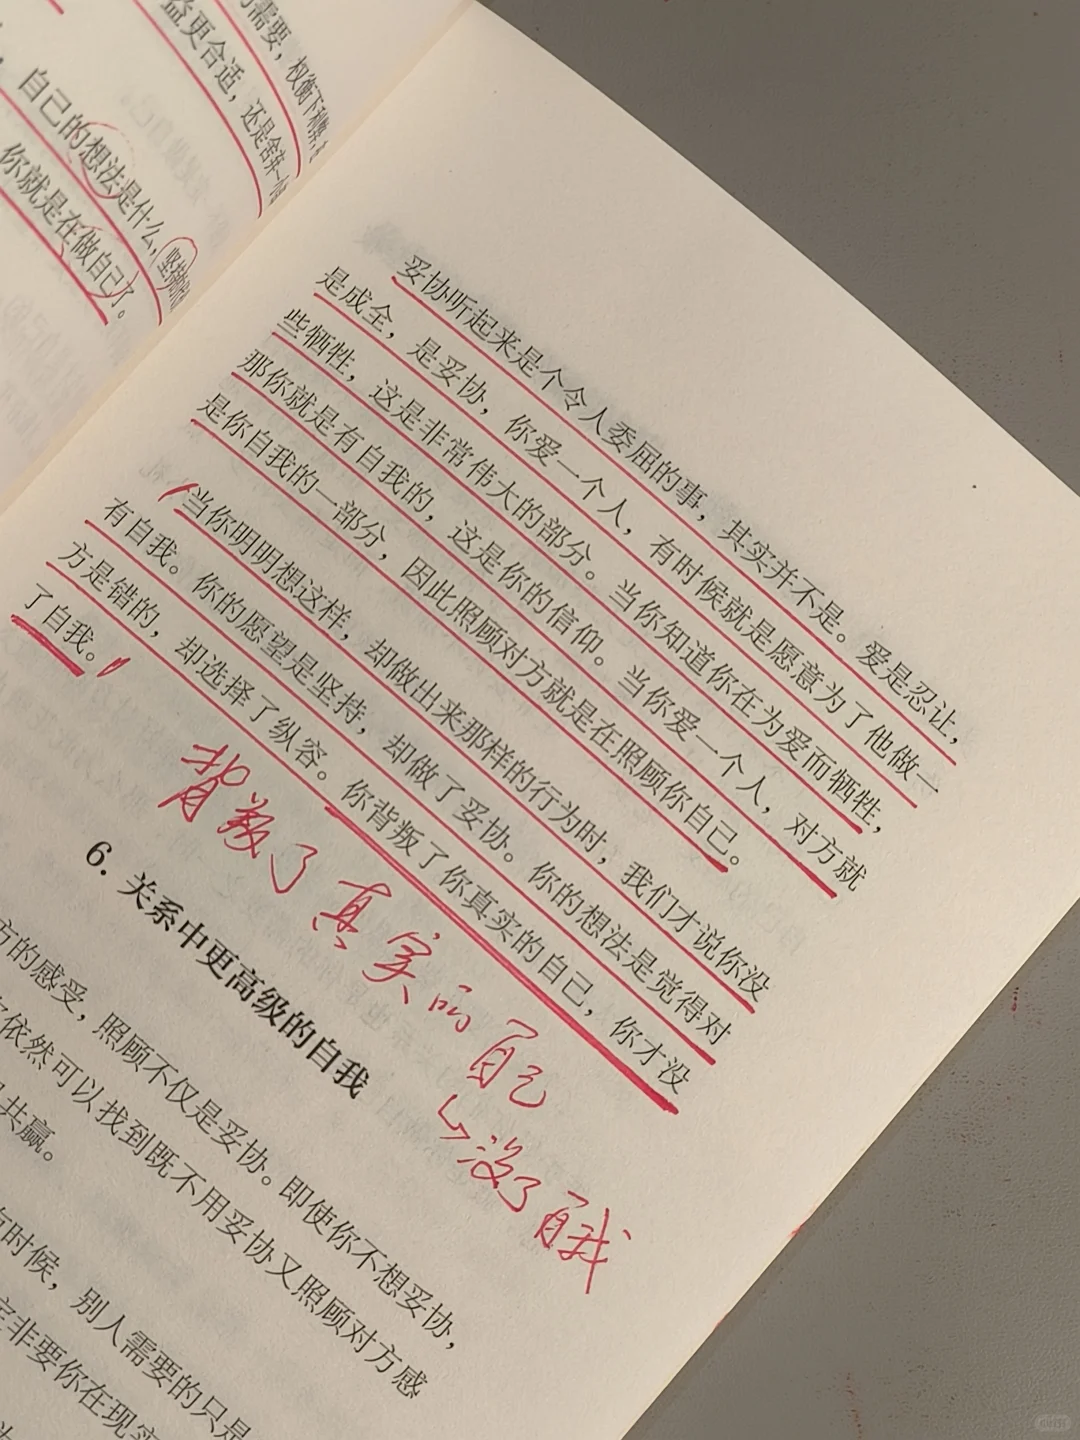 的需要，权衡下利弊，
益更合适，还是舍弃一小
，自己的想法是什么，坚持
你就是在做自己了。
妥协听起来是个令人委屈的事，其实并不是。爱是忍让，
是成全，是妥协，你爱一个人，有时候就是愿意为了他做一
些牺牲，这是非常伟大的部分。当你知道你在为爱而牺牲，
那你就是有自我的，这是你的信仰。当你爱一个人，对方就
是你自我的一部分，因此照顾对方就是在照顾你自己。
当你明明想这样，却做出来那样的行为时，我们才说你没
有自我。你的愿望是坚持，却做了妥协。你的想法是觉得对
方是错的，却选择了纵容。你背叛了你真实的自己，你才没
了自我。
背叛了真实的自己
↳没了自我
6. 关系中更高级的自我
方的感受，照顾不仅是妥协。即使你不想妥协，
依然可以找到既不用妥协又照顾对方感
共赢。
时候，别人需要的只是
非要你在现实